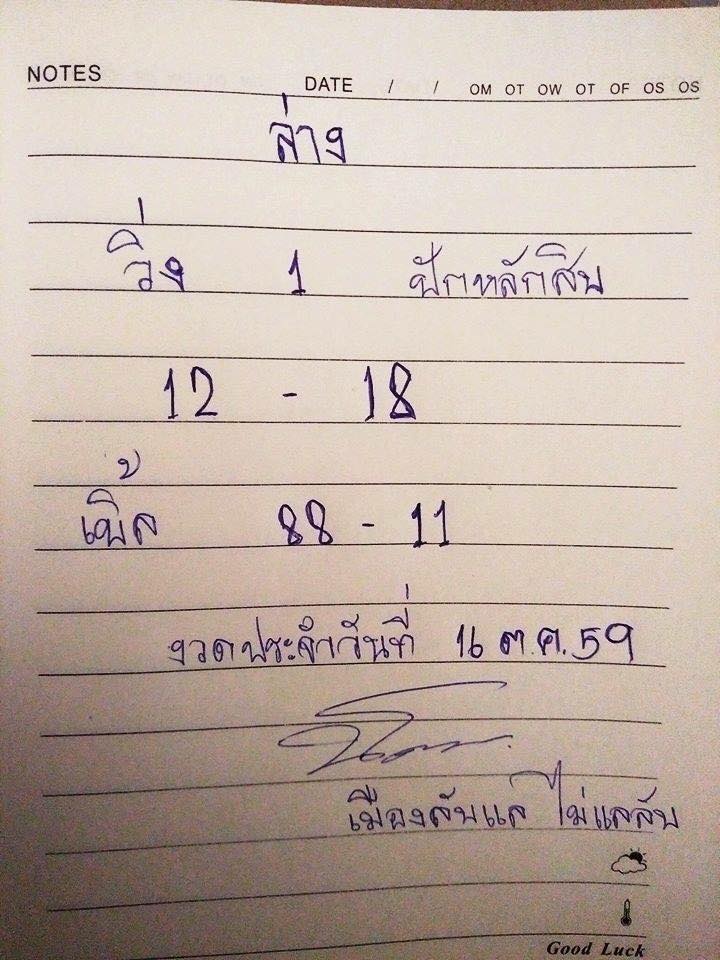 NOTES
DATE / / OM OT OW OT OF OS OS
ล่าง
วิ่ง 1 ปักหลักสิบ
12 - 18
เบิ้ล 88 - 11
งวดประจำวันที่ 16 ต.ค.59
เมืองลับแล ไม่แลลับ
Good Luck